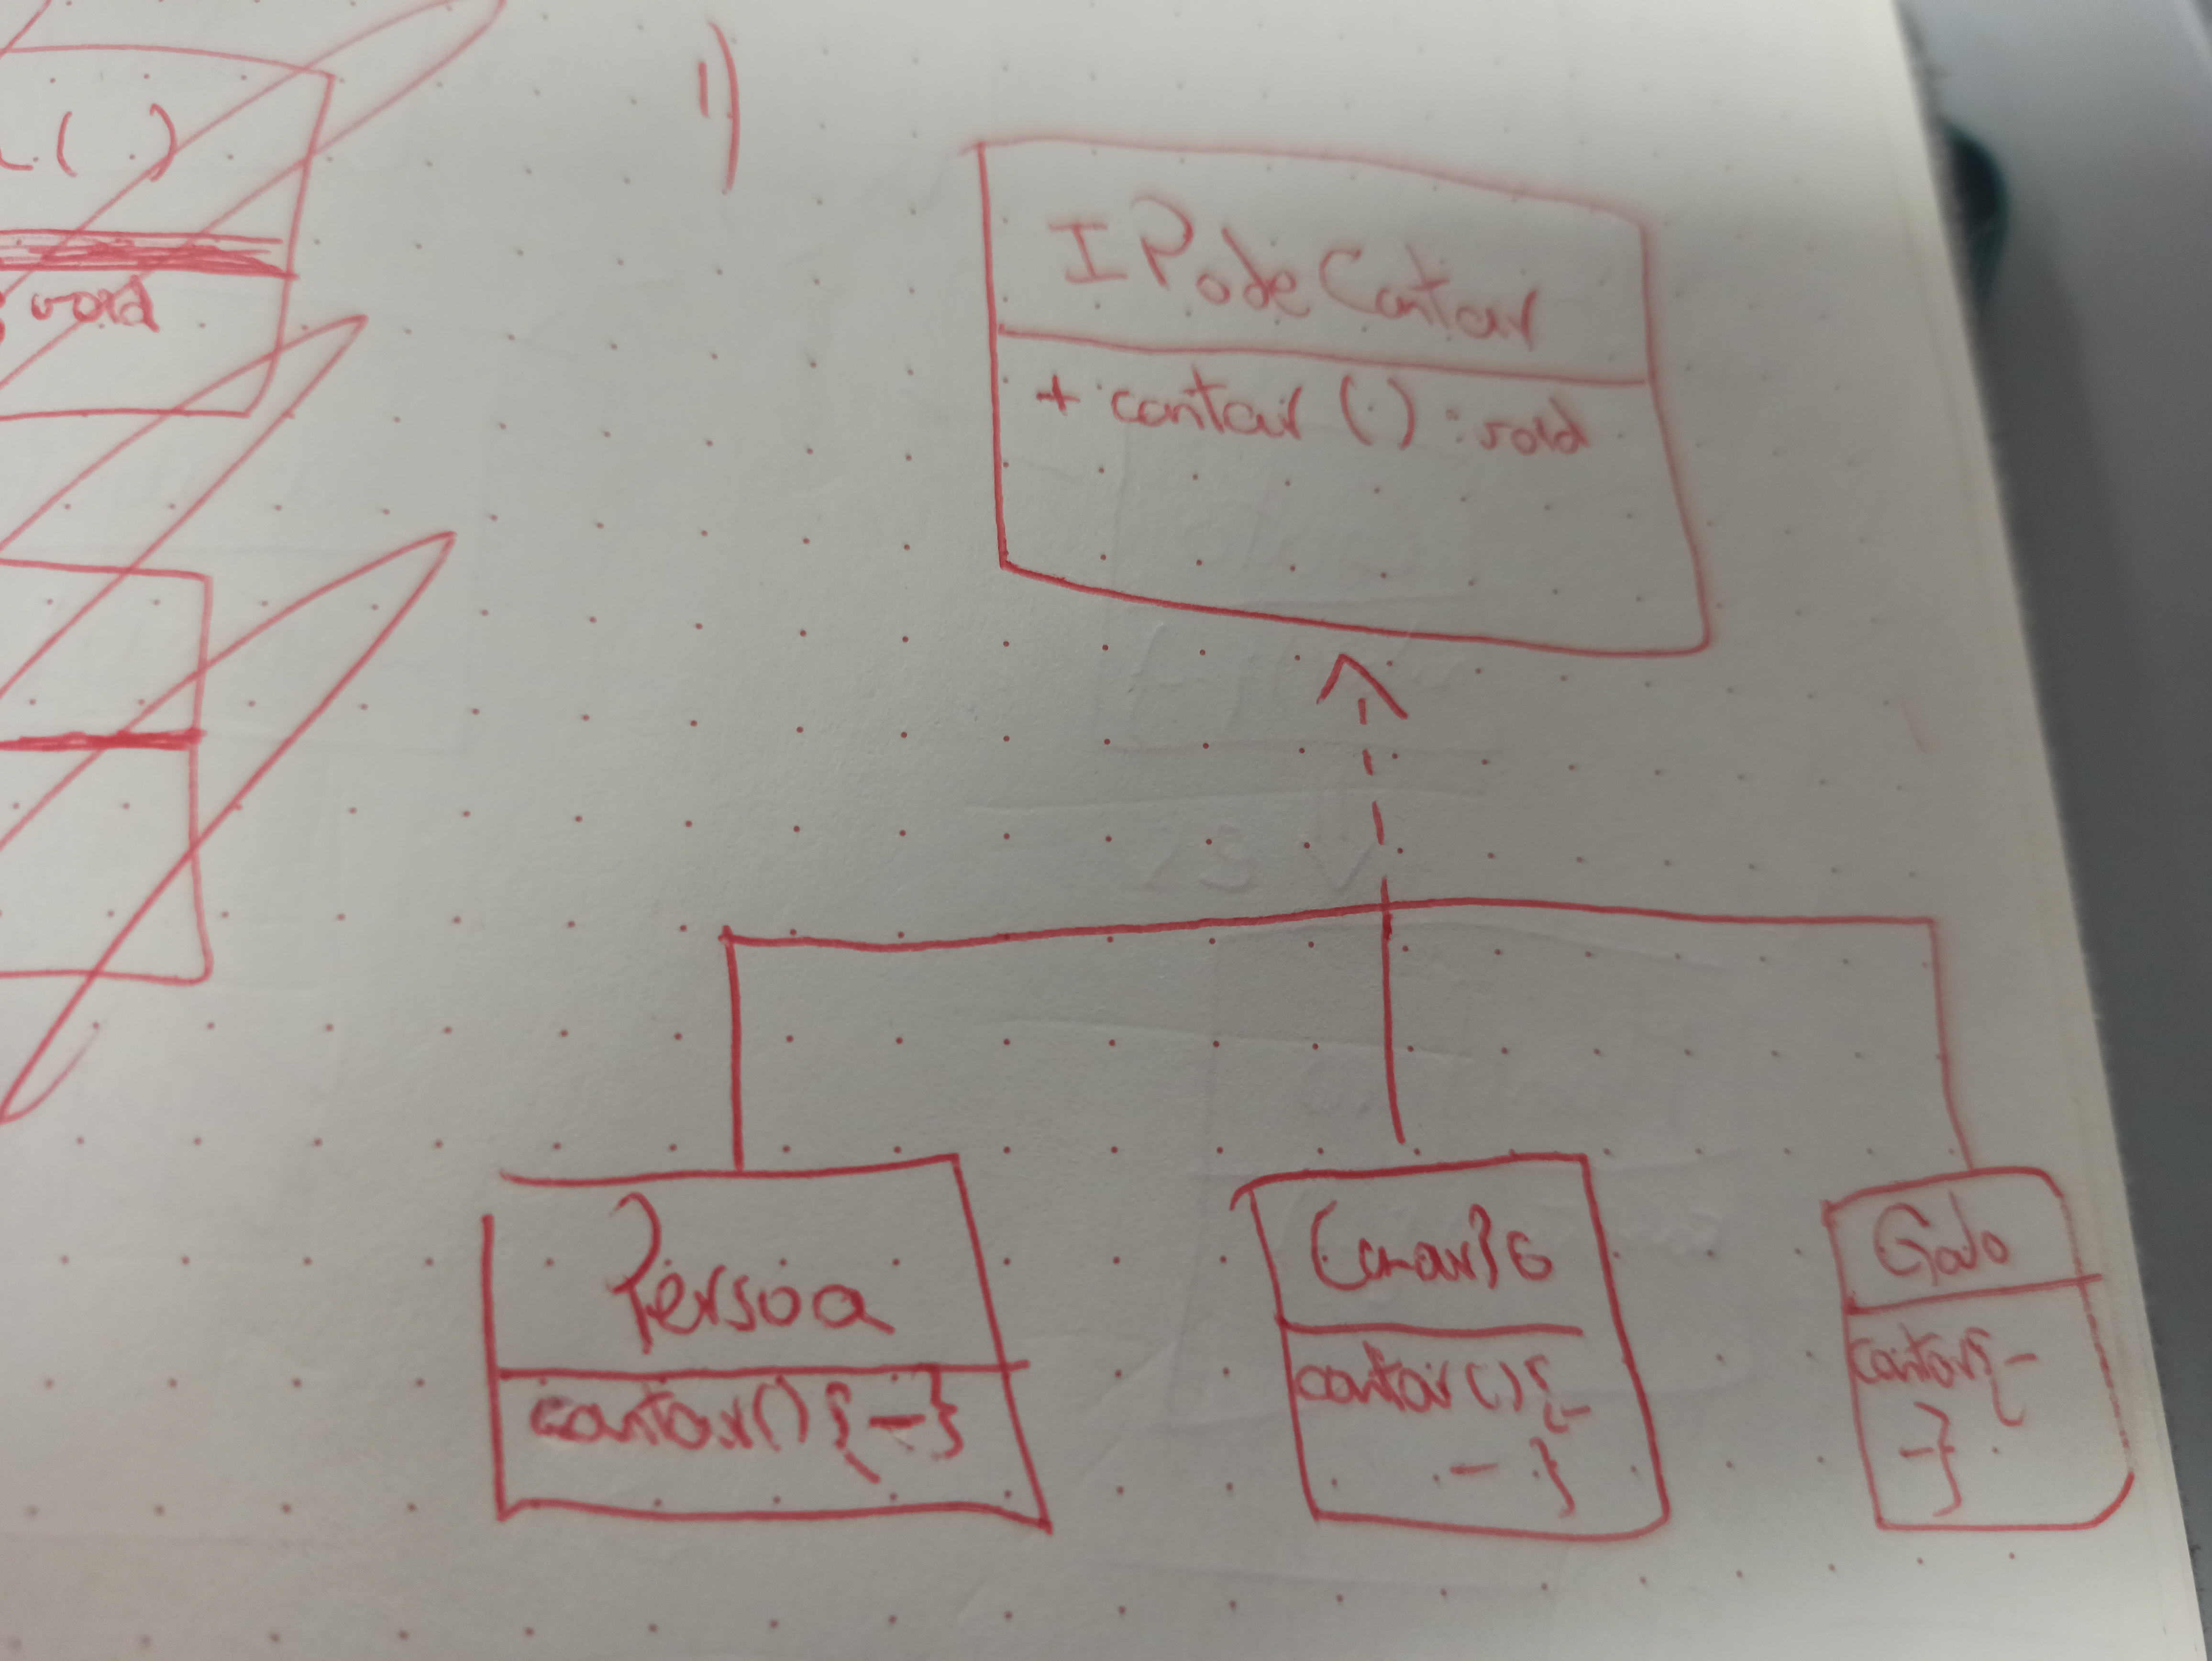 ( )
void
1)
IPodeCantar
+ cantar ( ) : void
Persoa
cantar() { - }
Canario
cantar() { -
- }
Galo
cantar { -
- }